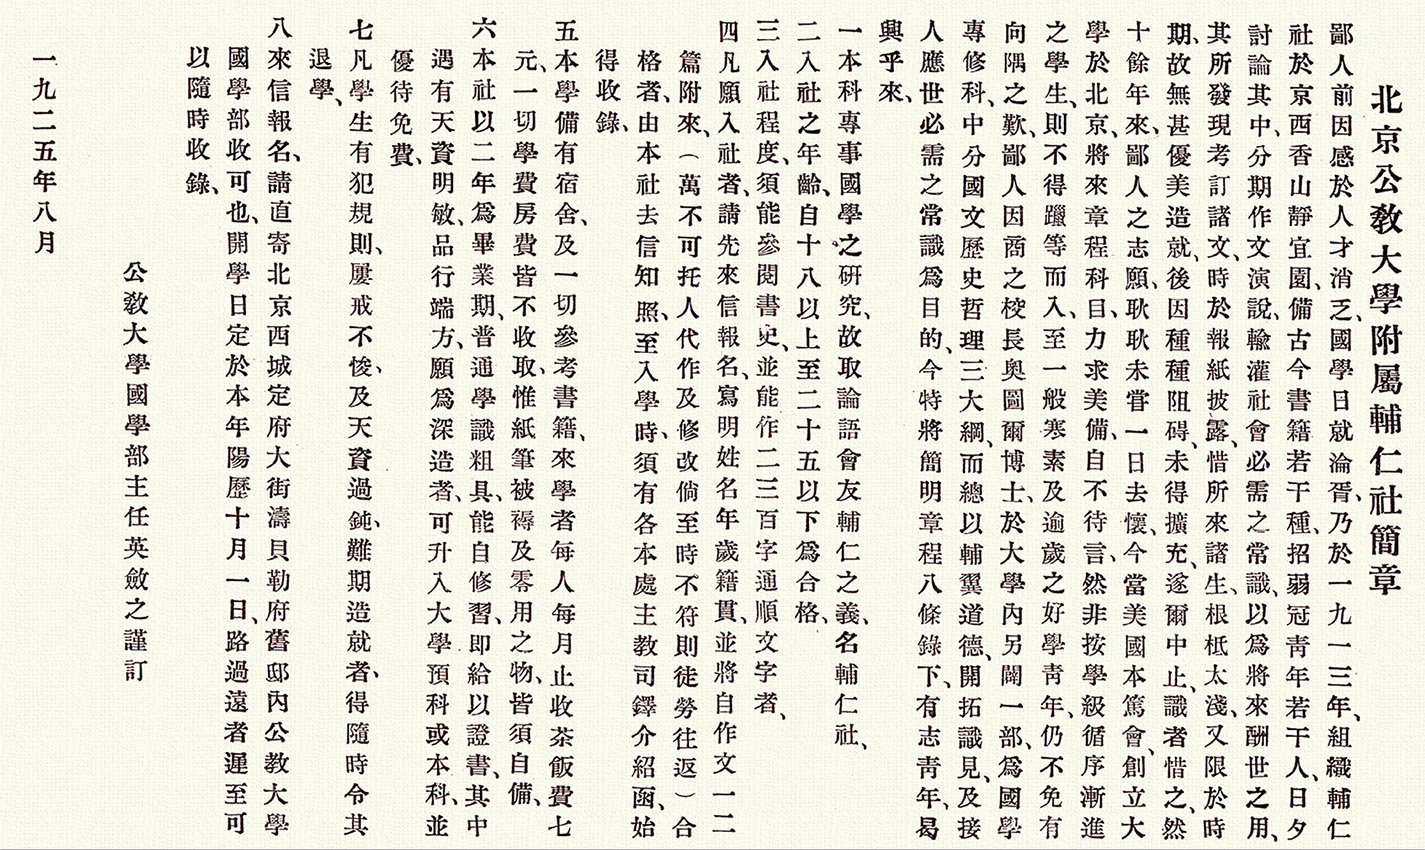 北京公敎大學附屬輔仁社簡章
鄙人前因感於人才消乏、國學日就淪胥、乃於一九一三年、組織輔仁
社於京西香山靜宜園、備古今書籍若干種、招弱冠靑年若干人、日夕
討論其中、分期作文演說、輸灌社會必需之常識、以爲將來酬世之用、
其所發現考訂諸文、時於報紙披露、惜所來諸生、根柢太淺、又限於時
期、故無甚優美造就、後因種種阻碍、未得擴充、遂爾中止、識者惜之、然
十餘年來、鄙人之志願、耿耿未嘗一日去懷、今當美國本篤會、創立大
學於北京、將來章程科目、力求美備、自不待言、然非按學級循序漸進
之學生、則不得躐等而入、至一般寒素及逾歲之好學靑年、仍不免有
向隅之歎、鄙人因商之校長奧圖爾博士、於大學內另闢一部、爲國學
專修科、中分國文歷史哲理三大綱、而總以輔翼道德、開拓識見、及接
人應世必需之常識爲目的、今特將簡明章程八條錄下、有志靑年、曷
興乎來、
一本科專事國學之硏究、故取論語會友輔仁之義、名輔仁社、
二入社之年齡、自十八以上至二十五以下爲合格、
三入社程度、須能參閱書史、並能作二三百字通順文字者、
四凡願入社者、請先來信報名、寫明姓名年歲籍貫、並將自作文一二
篇附來、（萬不可托人代作及修改倘至時不符則徒勞往返）合
格者、由本社去信知照、至入學時、須有各本處主敎司鐸介紹函、始
得收錄、
五本學備有宿舍、及一切參考書籍、來學者每人每月止收茶飯費七
元、一切學費房費皆不收取、惟紙筆被褥及零用之物、皆須自備、
六本社以二年爲畢業期、普通學識粗具、能自修習、即給以證書、其中
遇有天資明敏、品行端方、願爲深造者、可升入大學預科或本科、並
優待免費、
七凡學生有犯規則、屢戒不悛、及天資過鈍、難期造就者、得隨時令其
退學、
八來信報名、請直寄北京西城定府大街濤貝勒府舊邸內公敎大學
國學部收可也、開學日定於本年陽歷十月一日、路過遠者遲至可
以隨時收錄、
公敎大學國學部主任英斂之謹訂
一九二五年八月